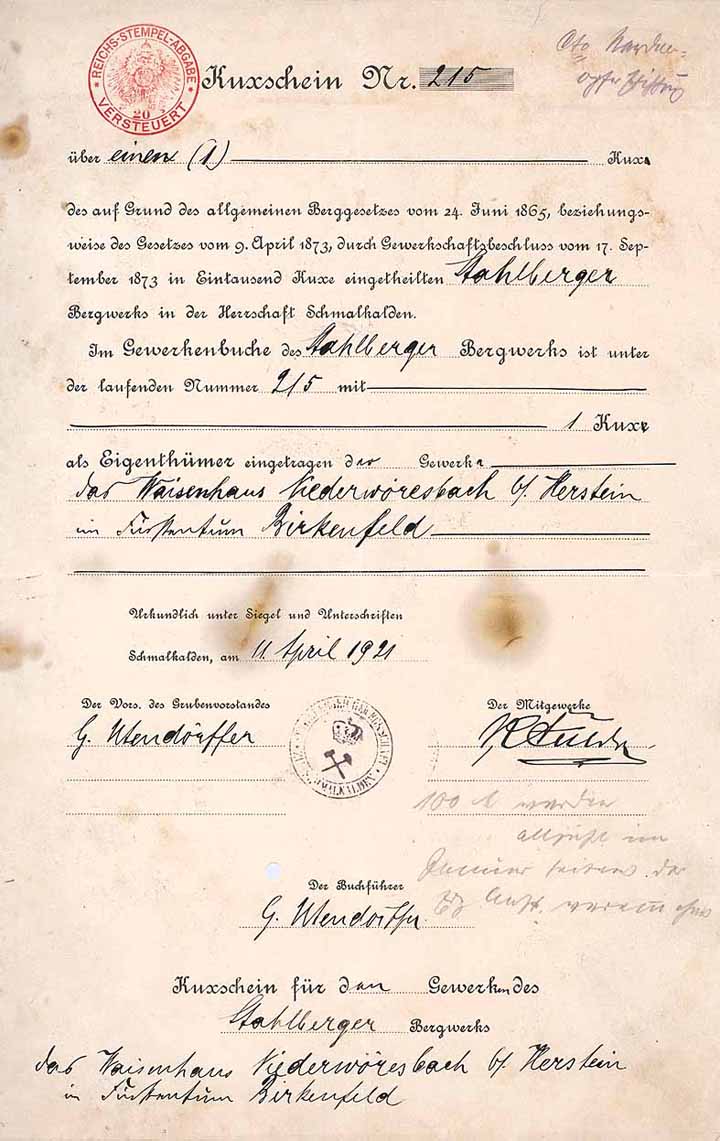 REICHS-STEMPEL-ABGABE
20
VERSTEUERT
Kuxschein Nr. 215
Cto
über einen (1) Kux.
des auf Grund des allgemeinen Berggesetzes vom 24. Juni 1865, beziehungs-
weise des Gesetzes vom 9. April 1873, durch Gewerkschaftsbeschluss vom 17. Sep-
tember 1873 in Eintausend Kuxe eingetheilten Stahlberger
Bergwerks in der Herrschaft Schmalkalden.
Im Gewerkenbuche des Stahlberger Bergwerks ist unter
der laufenden Nummer 215 mit
1 Kuxe
als Eigenthümer eingetragen der Gewerke
das Waisenhaus Niederwöresbach b/ Herstein
im Fürstentum Birkenfeld
Urkundlich unter Siegel und Unterschriften
Schmalkalden, am 11 April 1921
Der Vors. des Grubenvorstandes
Der Mitgewerke
G. Utendörffer
SCHMALKALDEN
100 M werden
im
Januar seitens der
Der Buchführer
G. Utendörffer
Kuxschein für den Gewerken des
Stahlberger Bergwerks
das Waisenhaus Niederwöresbach b/ Herstein
in Fürstentum Birkenfeld